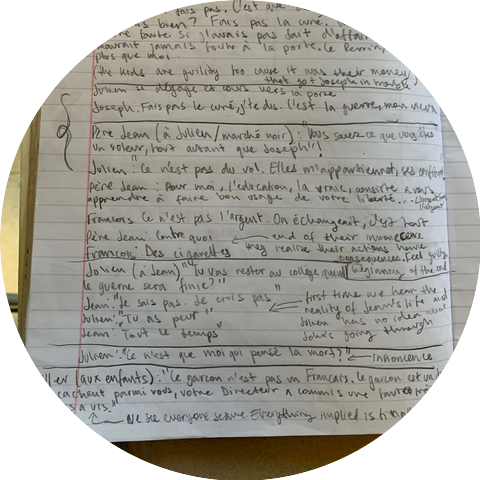 fais pas. C'est que
bien? Fais pas la curé.
faute. Si j'avais pas fait d'affai
aurait jamais foutu à la porte. Le Perrin,
plus que moi
(the kids are guility too cause it was their money)
that got Joseph in trouble
Julien se dégage et cours vers la porte
Joseph. Fais pas le curé, j'te dis. C'est la guerre, mon vieux
Père Jean (à Julien/marché noir): "Vous savez ce que vous êtes
un voleur, tout autant que Joseph"!
Julien: "Ce n'est pas du vol. Elles m'appartiennent, ses confitures
Père Jean: Pour moi, l'éducation, la vraie, consiste à vous
apprendre à faire bon usage de votre liberté...
l'argent
François Ce n'est pas l'argent. On échangeait, c'est tout
Père Jean: Contre quoi ← end of their innocence
François: Des cigarettes they realize their actions have
consequence. Feel guilty
Julien (à Jean) "Tu vas rester au collège quand beginning of the end
le guerre sera finie?"
Jean: "Je sais pas. Je crois pas" ← first time we hear the
reality of Jean's life and
Julien: "Tu as peur" Julien has no idea what
Jean: Tout le temps" Jours going through
Julien: "Ce n'est que moi qui pense la mort)" ← innoncence
ller (aux enfants): "Le garçon n'est pas un Français. Le garçon est un
cachant parmi vous, votre Directeur a commis une faute
s à vis."
← We see everyone scene Everything implied is